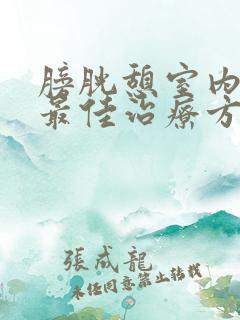 膀胱憩室內
最佳治療方
張成龍
未經同意禁止轉載